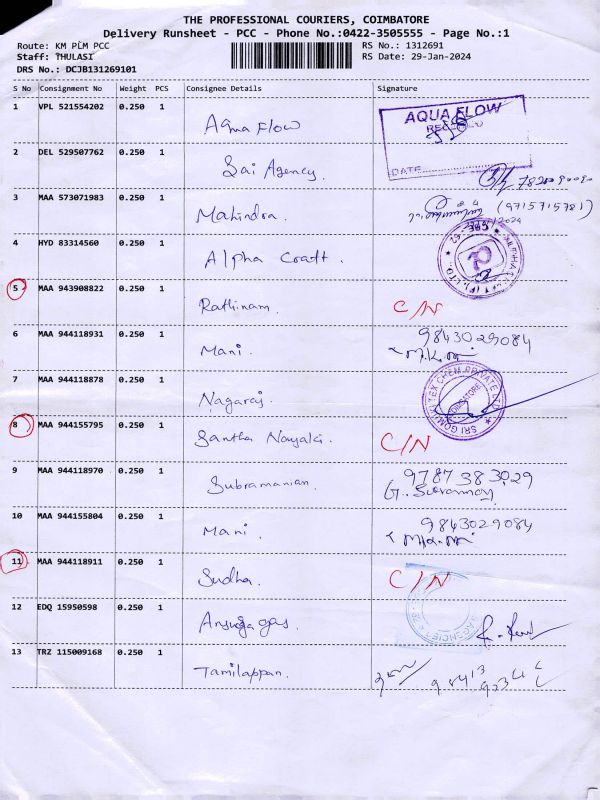 THE PROFESSIONAL COURIERS, COIMBATORE
Delivery Runsheet - PCC - Phone No.:0422-3505555 - Page No.:1
Route: KM PLM PCC RS No.: 1312691
Staff: THULASI RS Date: 29-Jan-2024
DRS No.: DCJB131269101
S No Consignment No Weight PCS Consignee Details Signature
1 VPL 521554202 0.250 1 Aqua Flow AQUA FLOW
RECEIVED
DATE
2 DEL 529507762 0.250 1 Sai Agency.
3 MAA 573071983 0.250 1 Mahindra. (9715715781)
4 HYD 83314560 0.250 1 Alpha Craft.
5 MAA 943908822 0.250 1 Rathinam. C/N
6 MAA 944118931 0.250 1 Mani. 9843029084
7 MAA 944118878 0.250 1 Nagaraj.
8 MAA 944155795 0.250 1 Santha Nayaki. C/N
9 MAA 944118970 0.250 1 Subramanian. 9787383029
10 MAA 944155804 0.250 1 Mani. 9843029084
11 MAA 944118911 0.250 1 Sudha. C/N
12 EDQ 15950598 0.250 1
13 TRZ 115009168 0.250 1 Tamilappan.